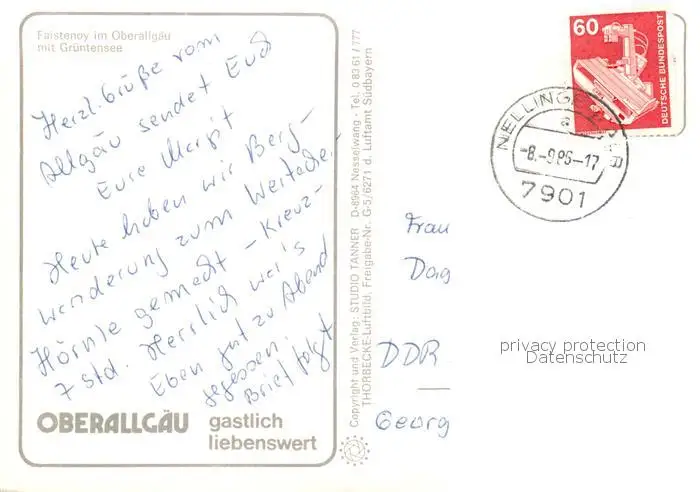 Faistenoy im Oberallgäu
mit Grüntensee
Herzl. Grüße vom
Allgäu sendet Euch
Eure Margit
Heute haben wir Berg-
wanderung zum Wertacher-
Hörnle gemacht - Kreuz-
7 Std. Herrlich war's
Eben gut zu Abend
gegessen.
Brief folgt
OBERALLGÄU
gastlich
liebenswert
Copyright und Verlag: STUDIO TANNER D-8964 Nesselwang · Tel. 0 83 61 / 777
THORBECKE-Luftbild, Freigabe-Nr. G-5/6271 d. Luftamt Südbayern
60
DEUTSCHE BUNDESPOST
NELLINGEN
a
-8.-9.86-17
7901
Frau
Dag
DDR
Georg
privacy protection
Datenschutz